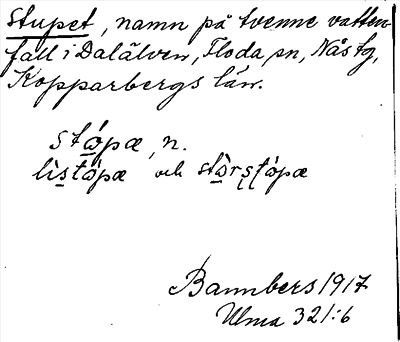 Stupet, namn på tvenne vatten-
fall i Dalälven, Floda sn, Nås tg,
Kopparbergs län.
stó̲pæ, n.
lìs̲tó̲pæ och stò̲rʂʈó̲pæ
Bannbers 1917
Ulma 321:6